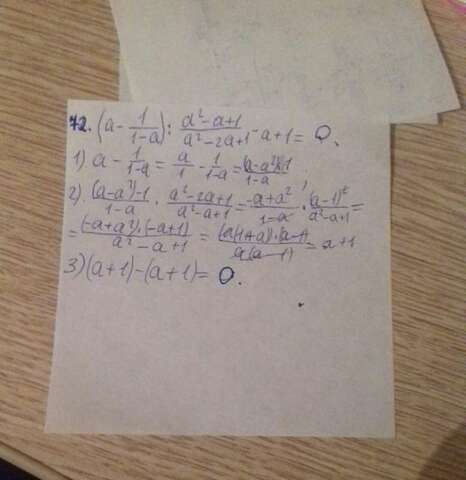 72. (a - 1/(1-a)) : (a²-a+1)/(a²-2a+1) - a+1 = 0.
1) a - 1/(1-a) = a/1 - 1/(1-a) = ((a-a²)-1)/(1-a)
2) ((a-a²)-1)/(1-a) · (a²-2a+1)/(a²-a+1) = (-a+a²)/(1-a) · (a-1)²/(a²-a+1) =
= ((-a+a²)·(-a+1))/(a²-a+1) = (a(1+a)·(a-1))/(a(a-1)) = a+1
3) (a+1)-(a+1) = 0.